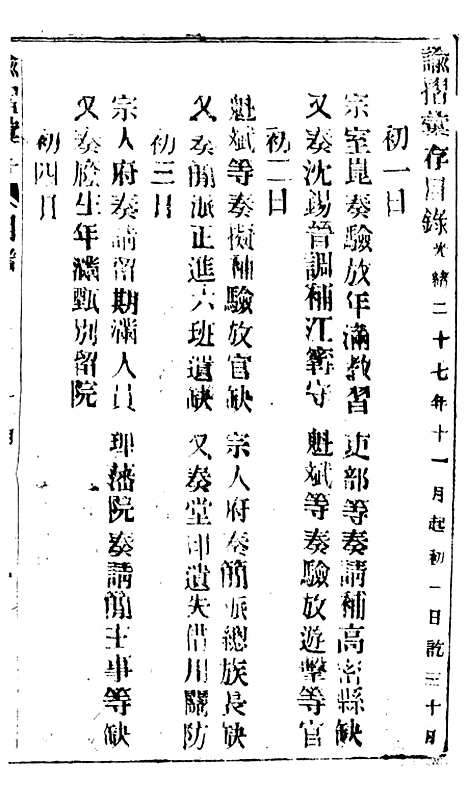 諭摺彙存目錄 光緒二十七年十一月起初一日訖三十日
初一日
宗室崑奏驗放年滿教習 吏部等奏請補高密縣缺
又奏沈錫晉調補江寧守 魁斌等奏驗放遊擊等官
初二日
魁斌等奏擬補驗放官缺 宗人府奏簡派總族長缺
又奏簡派正進六班遺缺 又奏堂印遺失借用關防
初三日
宗人府奏請留期滿人員 理藩院奏請簡主事等缺
又奏廕生年滿甄別留院
初四日